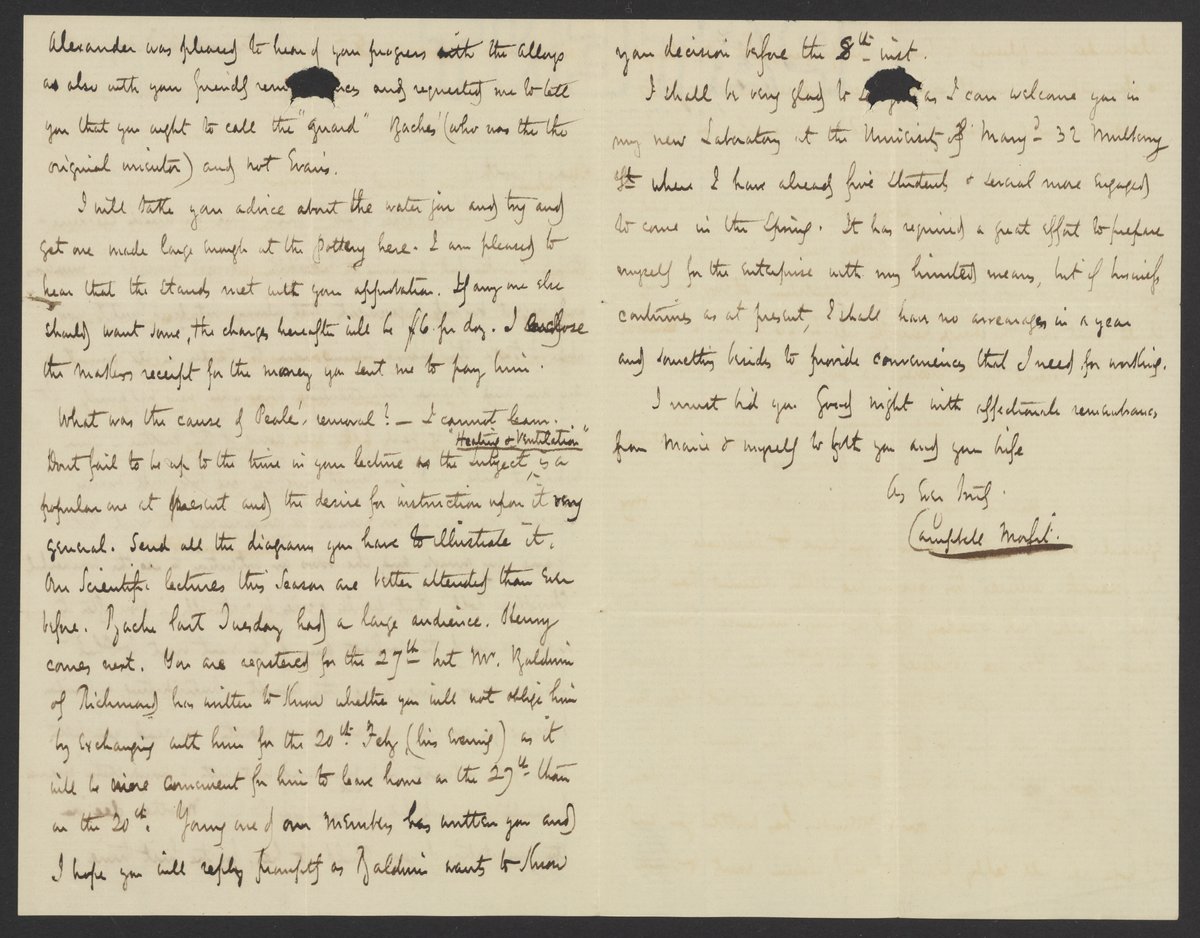 Alexander was pleased to hear of your progress with the alloys
as also with your friendly rem ces and requested me to tell
you that you ought to call the "guard" Bache's (who was the the
original inventor) and not Evans.
I will take your advice about the water jar and try and
get one made large enough at the pottery here. I am pleased to
hear that the stands met with your approbation. If any one else
should want some, the charges hereafter will be $6. per doz. I enclose
the makers receipt for the money you sent me to pay him.
What was the cause of Peale's removal? — I cannot learn.
"Heating & Ventilation"
Dont fail to be up to the time in your lecture as the subject, is a
popular one at present and the desire for instruction upon it very
general. Send all the diagrams you have to illustrate it.
Our Scientific lectures this season are better attended than ever
before. Bache last Tuesday had a large audience. Henry
comes next. You are registered for the 27th but Mr. Baldwin
of Richmond has written to Know whether you will not oblige him
by exchanging with him for the 20th Feby (his evening) as it
will be more convenient for him to leave home on the 27th than
on the 20th. Young one of our members has written you and
I hope you will reply promptly as Baldwin wants to Know
your decision before the 8th inst.
I shall be very glad to you as I can welcome you in
my new Laboratory at the University of Maryd 32 Mulberry
St where I have already five Students & several more engaged
to come in the Spring. It has required a great effort to prepare
myself for the enterprise with my limited means, but if business
continues as at present, I shall have no arrearages in a year
and something besides to provide conveniences that I need for working.
I must bid you Good night with affectionate remembrances
from Marie & myself to both you and your wife
As Ever truly.
Campbell Morfit.